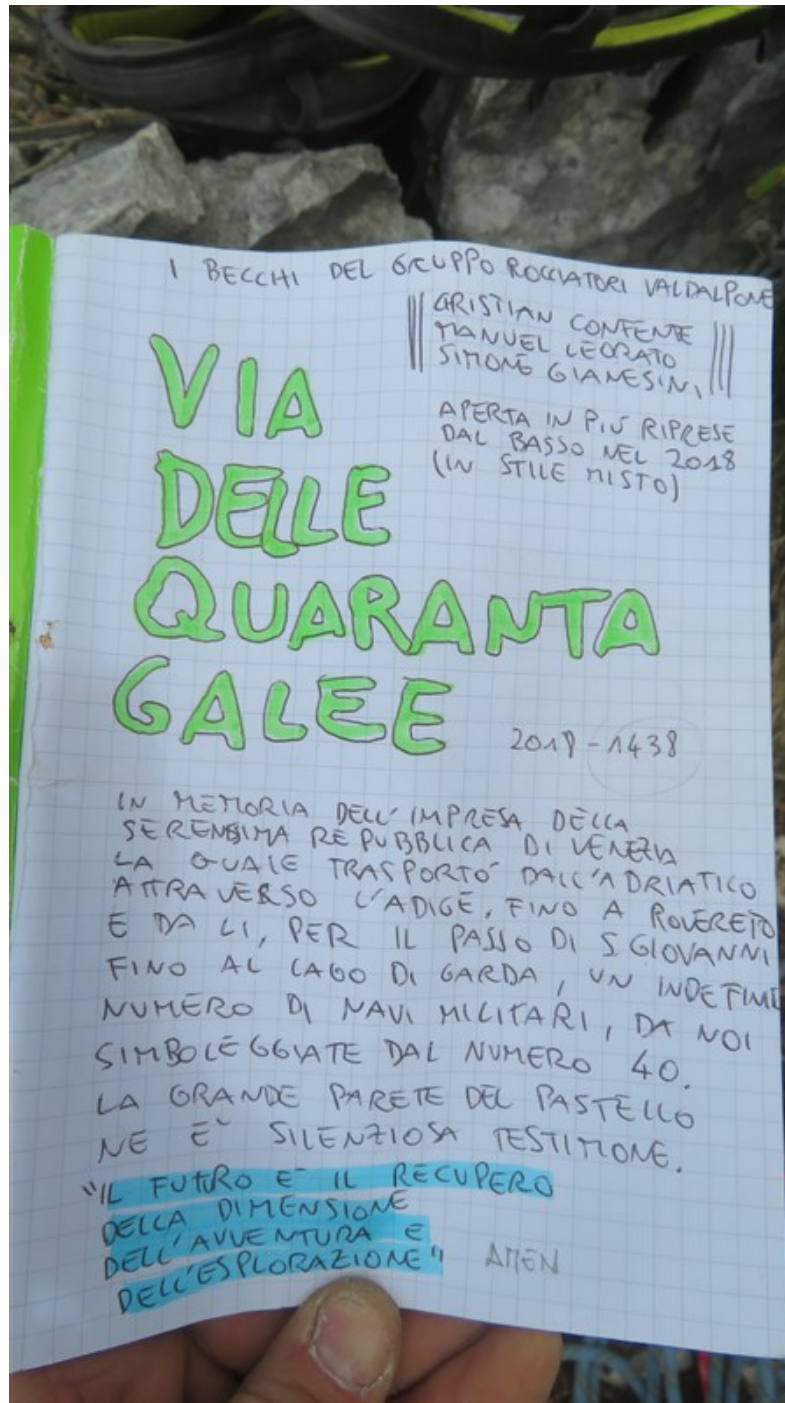 I BECCHI DEL GRUPPO ROCCIATORI VALDALPONE
CRISTIAN CONFENTE
MANUEL LEORATO
SIMONE GIANESINI
APERTA IN PIÙ RIPRESE
DAL BASSO NEL 2018
(IN STILE MISTO)
VIA
DELLE
QUARANTA
GALEE
2018 - 1438
IN MEMORIA DELL'IMPRESA DELLA
SERENISSIMA REPUBBLICA DI VENEZIA
LA QUALE TRASPORTÒ DALL'ADRIATICO
ATTRAVERSO L'ADIGE, FINO A ROVERETO
E DA LI, PER IL PASSO DI S GIOVANNI
FINO AL LAGO DI GARDA, UN INDEFINI
NUMERO DI NAVI MILITARI, DA NOI
SIMBOLEGGIATE DAL NUMERO 40.
LA GRANDE PARETE DEL PASTELLO
NE È SILENZIOSA TESTIMONE.
"IL FUTURO È IL RECUPERO
DELLA DIMENSIONE
DELL'AVVENTURA E
DELL'ESPLORAZIONE" AMEN